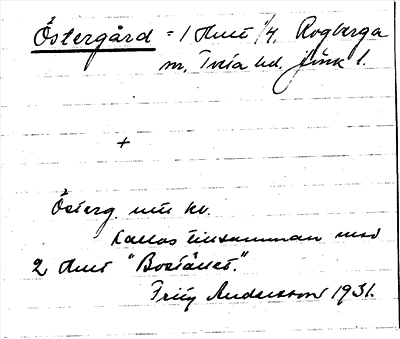 Östergård = 1 Hmt 1/4, Rogberga
m, Tveta hd, Jönk l.
+
Österg. mtl kv.
kallas tillsamman med
2 Hmt "Bostället."
Fritz Andersson 1931.